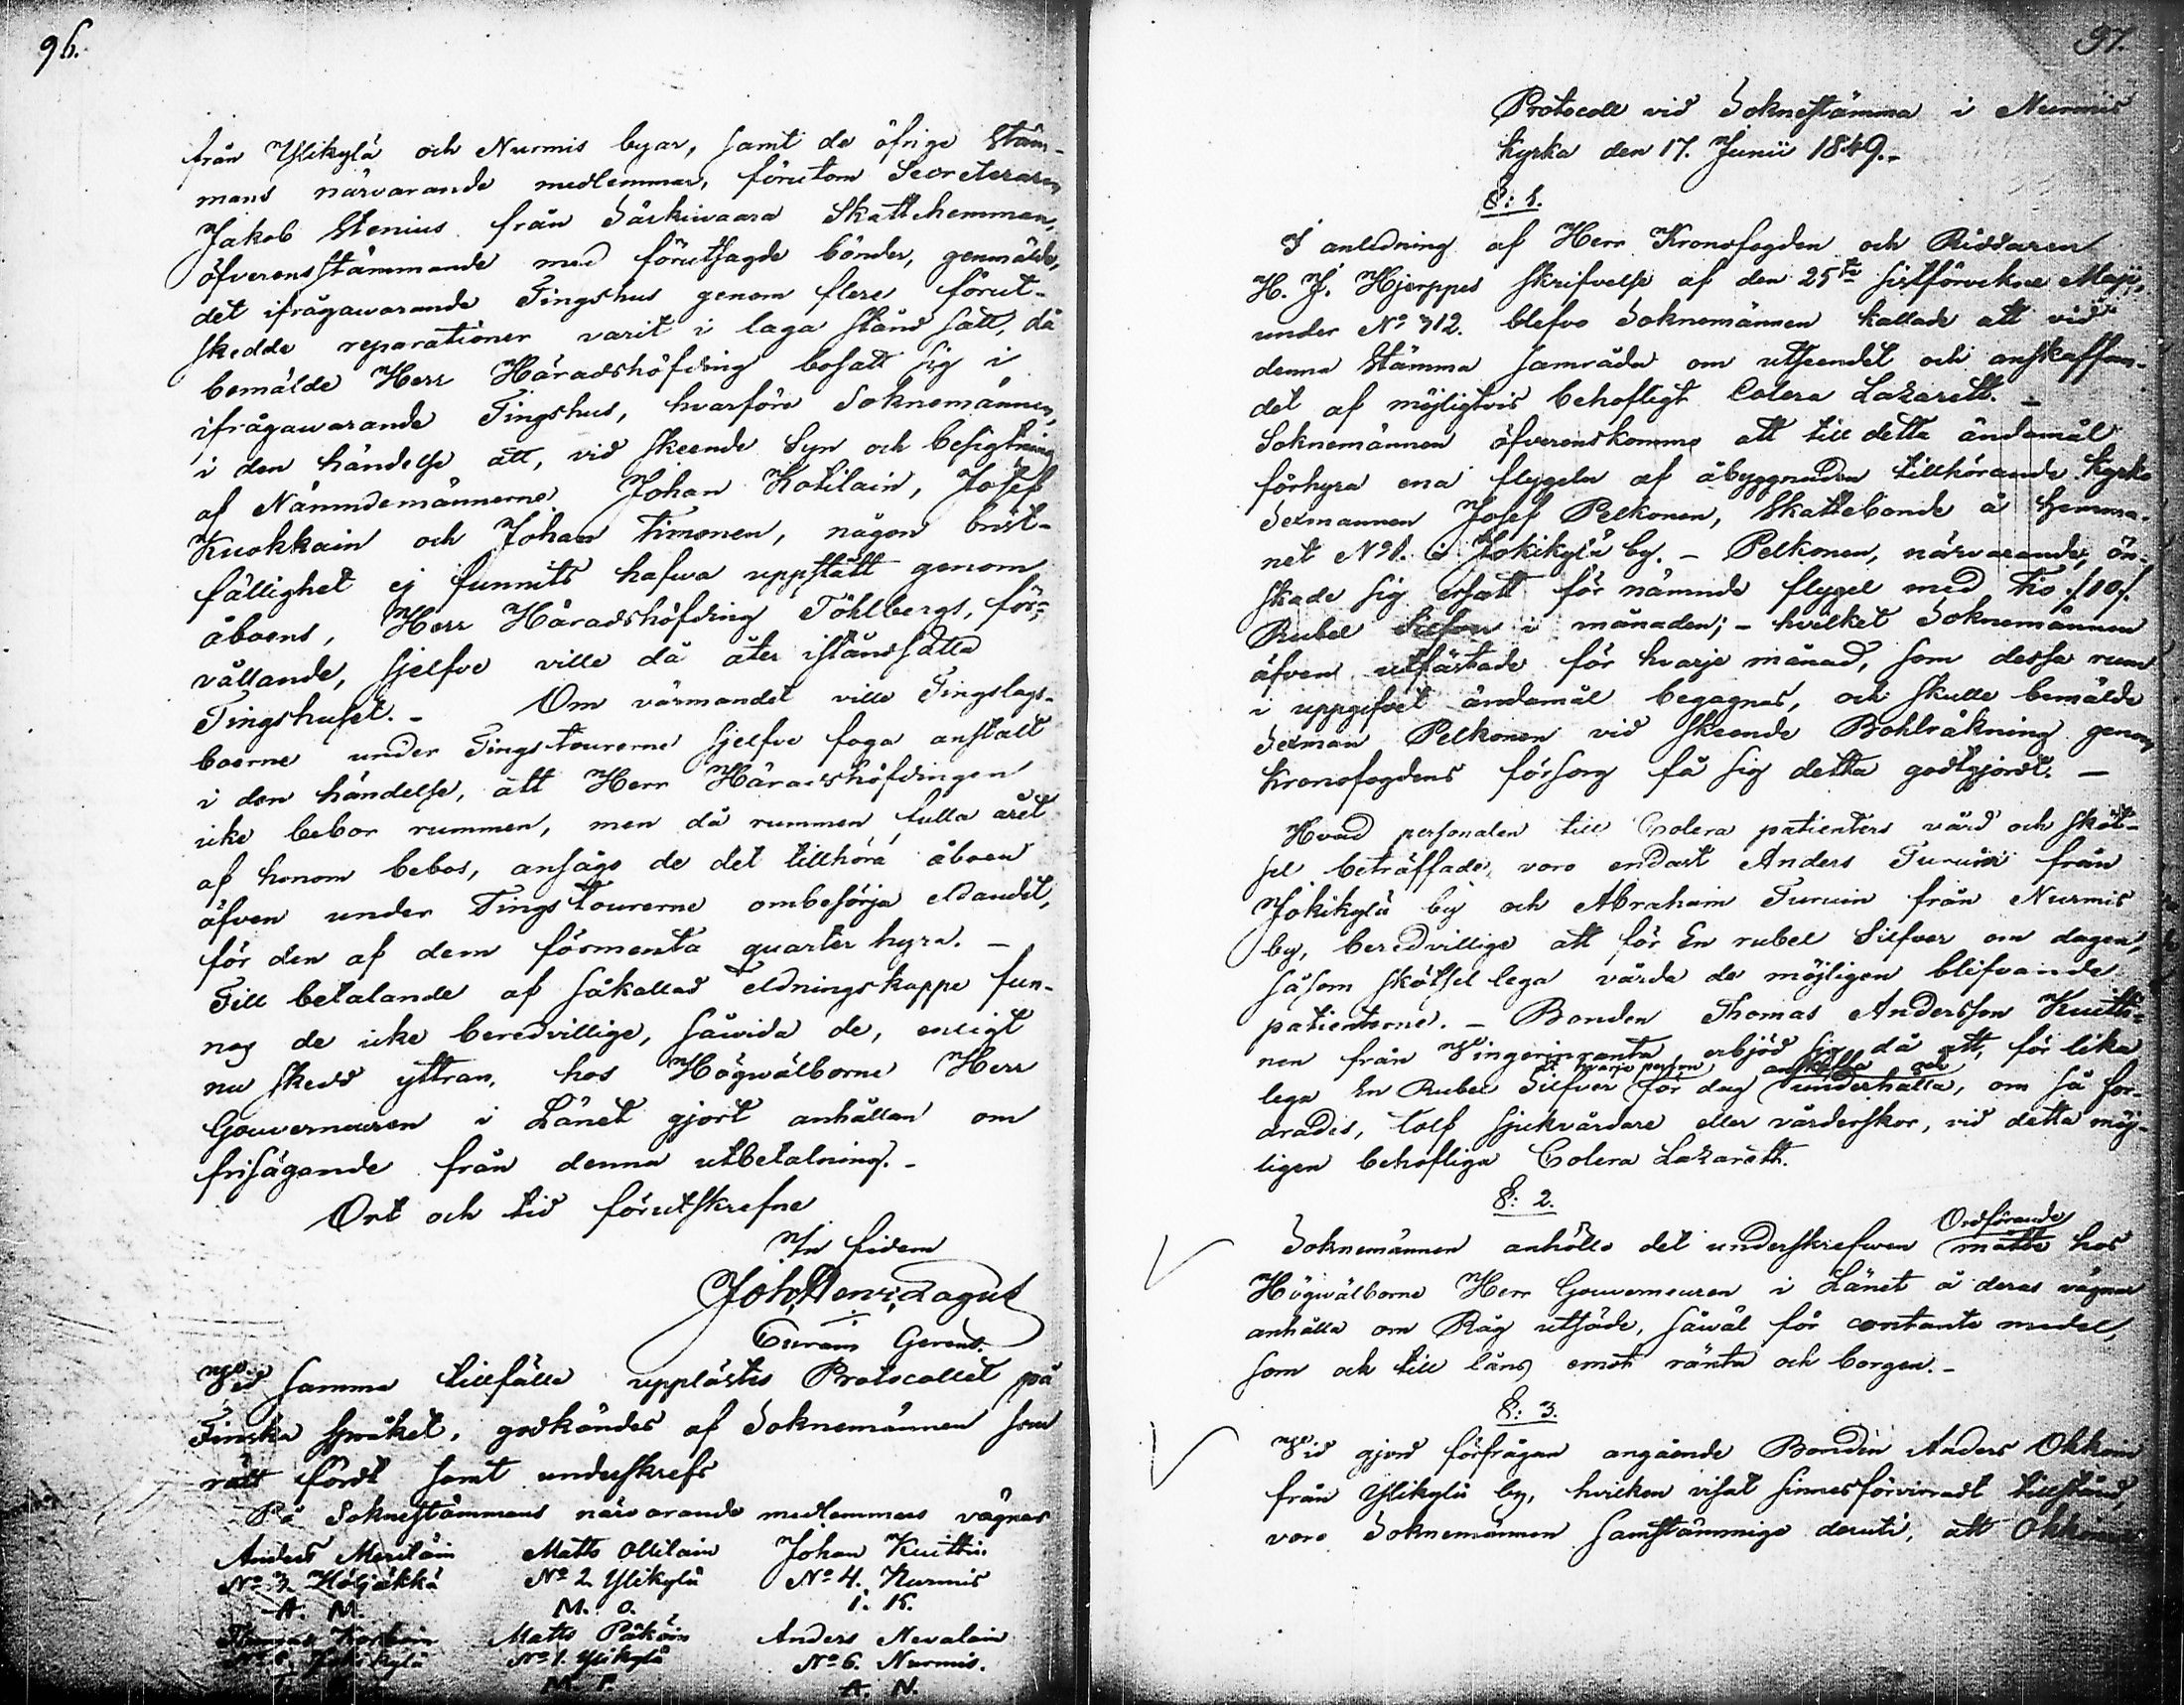 96.
från Ylikylä och Nurmis byar, samt de öfrige Stäm-
mans närvarande medlemmar, förutom Secreteraren
Jakob Stenius från Särkivaara Skattehemman,
öfverensstämmande med förutsagde bönder, genmälde,
det ifrågawarande Tingshus genom flere förut-
skedde reparationer varit i laga stånd satt, då
bemälde Herr Häradshöfding bosatt sig i
ifrågawarande Tingshus, hvarföre Soknemännen,
i den händelse att, vid skeende Syn och besigtning
af Nämndemännerne Johan Kotilain, Josef
Kuokkain och Johan Timonen, någon brist-
fällighet ej funnits hafwa uppstått genom
åboens, Herr Häradshöfding Föhlbergs, för-
vållande, sjelfve ville då åter iståndsätta
Tingshuset. - Om värmandet ville Tingslags-
boerne under Tingstourerne sjelfve foga anstalt
i den händelse, att Herr Häradshöfdingen
icke bebor rummen, men då rummen fulla året
af honom bebos, ansågo de det tillhöra åboen
äfven under Tingstourerne ombesörja eldandet,
för den af dem förmenta quarter hyra. -
Till betalande af såkallad eldningskappe fun-
nos de icke beredvillige, såvida de, enligt
nu skedd yttran, hos Högwälborne Herr
Gouverneuren i Länet gjort anhållan om
frisägande från denna utbetalning. -
Ort och tid förutskrefne
In fidem
Joh. Henr. Lagus
Curam Gerens.
Vid samma tillfälle upplästes Protocollet på
Finska språket, godkändes af Soknemännen som
rätt fördt samt underskrefs
På Soknestämmans närvarande medlemmars vägnar
Anders Meriläin Matts Ollilain Johan Kuittin
No 3. Höljäkkä No 2 Ylikylä No 4. Nurmis
A. M. M. O. I. K.
Matts Päkäin Anders Nevalain
No 1. Ylikylä No 6. Nurmis.
M. P. A. N.
97.
Protocoll vid Soknestämma i Nurmis
kyrka den 17. Junii 1849. -
§: 1.
I anledning af Herr Kronofogden och Riddaren
H. J. Hjerppes skrifvelse af den 25te sistförvekne Maji,
under No 312. blefvo Soknemännen kallade att vid
denna Stämma samråda om utseendet och anskaffan-
det af möjligtvis behofligt Colera Lazarett. -
Soknemännen öfverenskommo att till detta ändamål
förhyra ena flygeln af åbyggnaden tillhörande kyrko
Sexmannen Josef Pelkonen, Skattebonde å hemma-
net No 1. i Jokikylä by. - Pelkonen, närvarande, ön-
skade sig ersatt för nämnde flygel med tio /10/.
Rubel Silfver i månaden; - hvilket Soknemännen
äfven utfästade för hvarje månad, som dessa rum
i uppgifvet ändamål begagnas, och skulle bemälde
Sexman Pelkonen vid skeende Bohlräkning genom
Kronofogdens försorg få sig detta godtgjordt. -
Hvad personalen till Colera patienters vård och sköt-
sel beträffade, voro endast Anders Turuin från
Jokikylä by och Abraham Turuin från Nurmis
by, beredvillige att för En rubel Silfver om dagen,
såsom skötsel lega vårda de möjligen blifvande
patienterne. - Bonden Thomas Andersson Kuitti-
nen från Vingerinranta erbjöd sig då att, för lika
åt hvarje person, anskaffa och
lega En Rubel Silfver för dag underhålla, om så for-
drades, tolf sjukvårdare eller vårderskor, vid detta möj-
ligen behofliga Colera Lazarett.
§: 2.
Ordförande
Soknemännen anhöllo det underskrefwen måtte hos
Högwälborne Herr Gouverneuren i Länet å deras vägnar
anhålla om Råg utsäde, såwäl för contante medel,
som ock till låns emot ränta och borgen. -
§: 3.
Vid gjord förfrågan angående Bonden Anders Okkoin
från Ylikylä by, hvilken visat sinnesförvirradt tillstånd,
voro Soknemännen samstämmige deruti, att